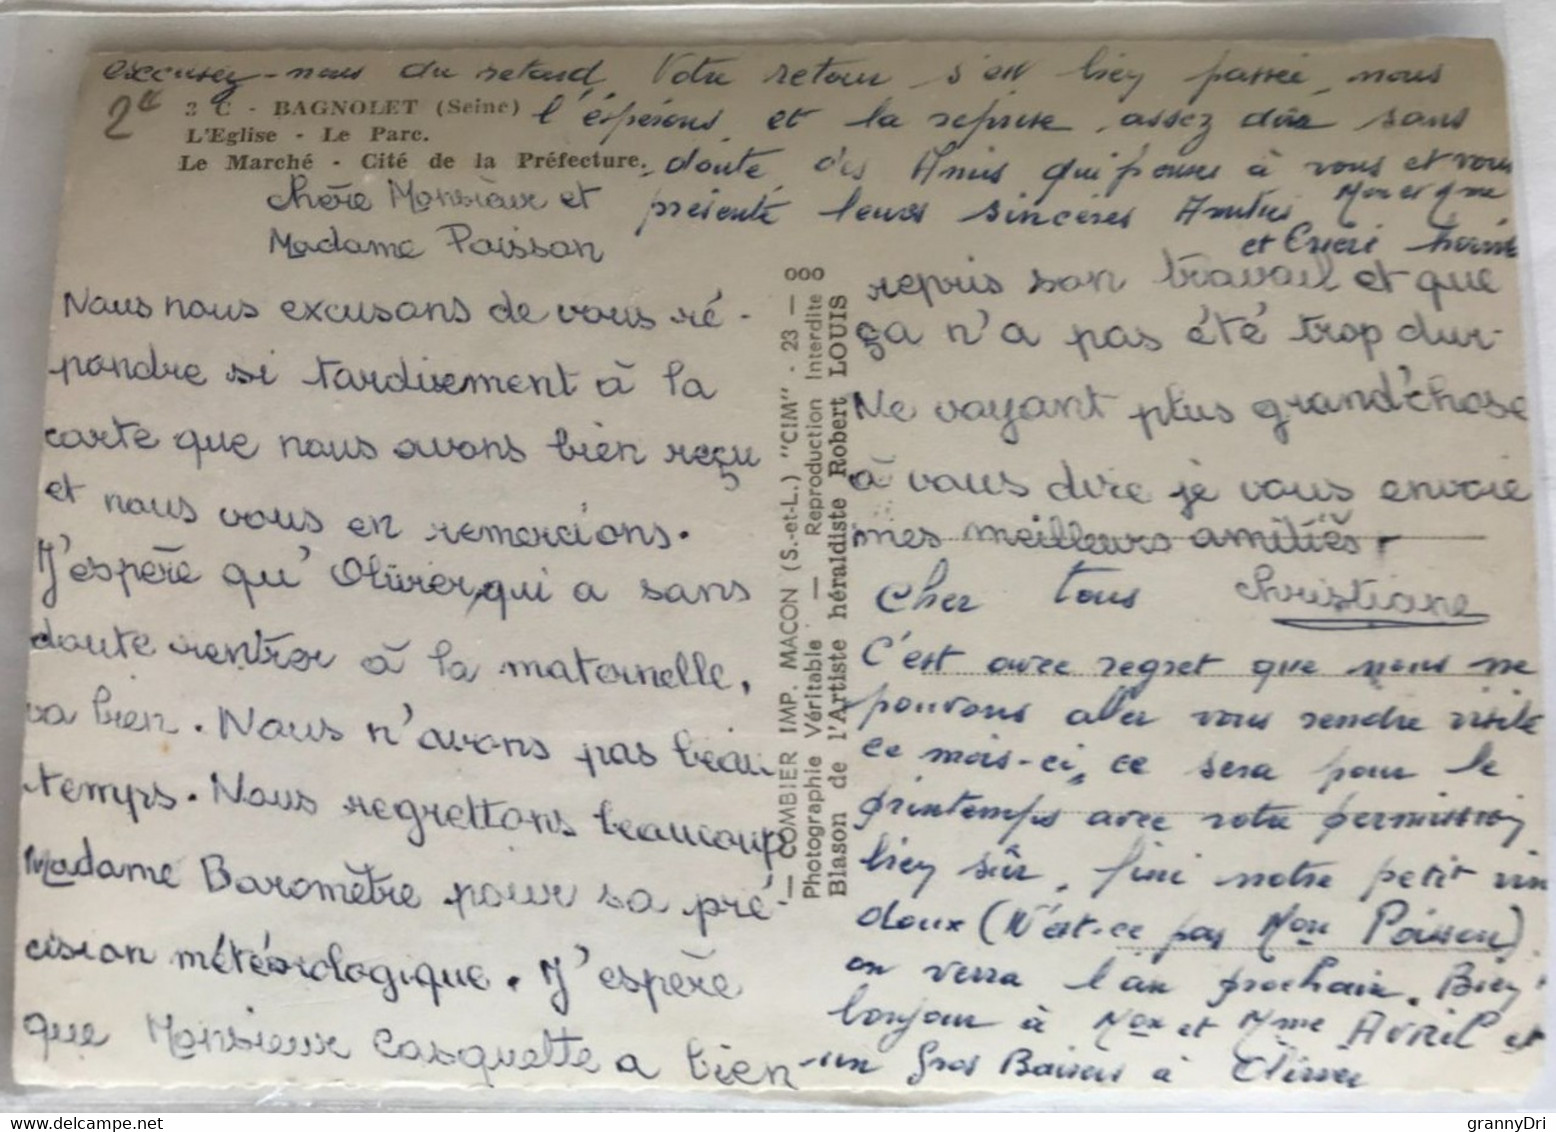 excusez-nous du retard, Votre retour s'est bien passée, nous
2€
3 C - BAGNOLET (Seine)
l'éspérons, et la reprise, assez dûr sans
L'Eglise - Le Parc.
Le Marché - Cité de la Préfecture.
doute des Amis qui pense à vous et vous
présente leurs sincères Amitiés Mr et Mme
et
Chère Monsieur et
Madame Poisson
Nous nous excusons de vous ré-
pondre si tardivement à la
carte que nous avons bien reçu
et nous vous en remercions.
J'espère qu'Olivier, qui a sans
doute rentrer à la maternelle,
va bien. Nous n'avons pas beau
temps. Nous regrettons beaucoup
Madame Baromètre pour sa pré-
cision météorologique. J'espère
que Monsieur Casquette a bien
— COMBIER IMP. MACON (S.-et-L.) "CIM" - 23 — 000
Photographie Véritable — Reproduction Interdite
Blason de l'Artiste héraldiste Robert LOUIS
repris son travail et que
ça n'a pas été trop dur.
Ne voyant plus grand'chose
à vous dire je vous envoie
mes meilleurs amitiés.
Christiane
Cher tous
C'est avec regret que nous ne
pouvons aller vous rendre visite
ce mois-ci, ce sera pour le
printemps avec votre permission
bien sûr, fini notre petit vin
doux (N'est-ce pas Mon Poisson)
on verra l'an prochain. Bien
bonjour à Mon et Mme Avril et
un Gros Baisers à Olivier
grannyDri